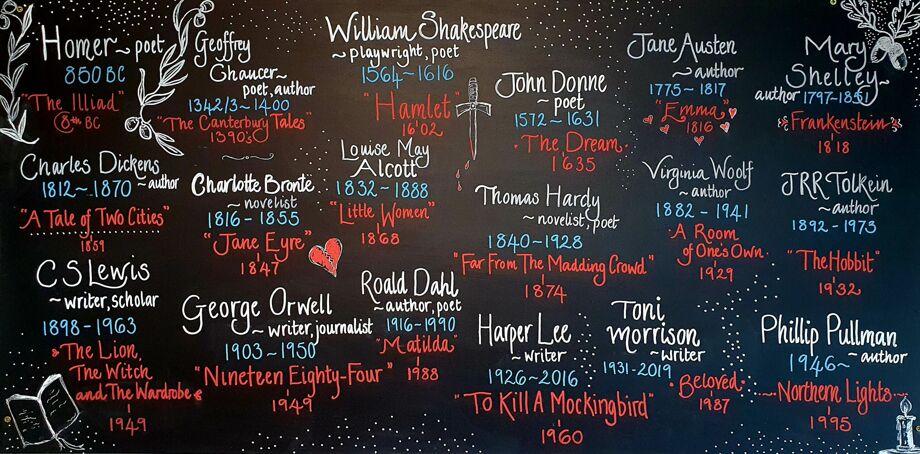 Homer ~ poet
850 BC
"The Illiad"
8th BC
Geoffrey
Chaucer ~
poet, author
1342/3 ~ 1400
"The Canterbury Tales"
1390's
William Shakespeare
~ playwright, poet
1564 ~ 1616
"Hamlet"
1602
John Donne
~ poet
1572 ~ 1631
The Dream
1635
Jane Austen
~ author
1775 ~ 1817
"Emma"
1816
Mary
Shelley ~
author 1797-1851
Frankenstein
1818
Charles Dickens
1812 ~ 1870 ~ author
"A Tale of Two Cities"
1859
Charlotte Brontë
~ novelist
1816 - 1855
"Jane Eyre"
1847
Louise May
Alcott
1832 ~ 1888
"Little Women"
1868
Thomas Hardy
~ novelist, poet
1840 ~ 1928
"Far From The Madding Crowd"
1874
Virginia Woolf
~ author
1882 - 1941
A Room
of One's Own
1929
JRR Tolkein
~ author
1892 - 1973
"The Hobbit"
1932
CS Lewis
~ writer, scholar
1898 - 1963
The Lion,
The Witch
and The Wardrobe
1949
George Orwell
~ writer, journalist
1903 ~ 1950
"Nineteen Eighty-Four"
1949
Roald Dahl
~ author, poet
1916 - 1990
"Matilda"
1988
Harper Lee
~ writer
1926 ~ 2016
"To Kill A Mockingbird"
1960
Toni
Morrison
~ writer
1931-2019
Beloved
1987
Phillip Pullman
1946 ~ ~ author
Northern Lights
1995